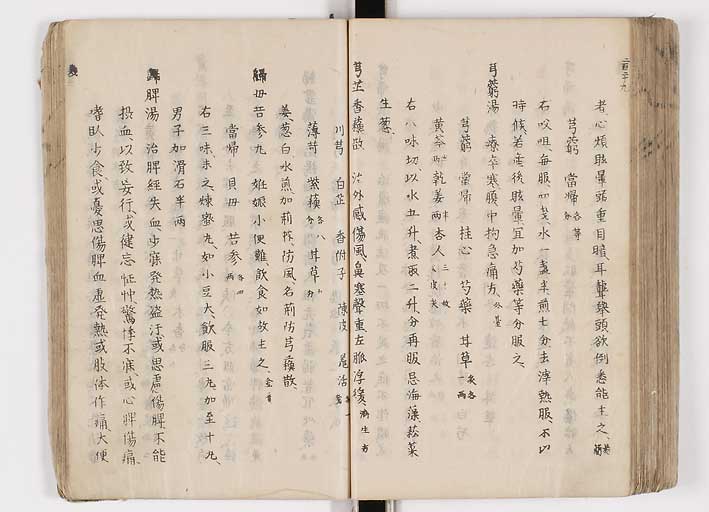 二百三十九
者心煩眩暈頭重目瞑耳聾举頭欲倒悉能主之
芎藭 當帰 各等分
右㕮咀每服四戋水一盞半煎七分去滓熱服不以
時候若産後眩暈宜加芍藥等分服之
芎藭湯 療卒寒腹中拘急痛方
芎藭 當帰 桂心 芍藥 甘草
黄芩 乾姜 杏人
右八味切以水五升煮取二升分再服忌海藻菘菜
生葱
芎芷香蘇散 治外感傷風鼻塞聲重左脉浮緩 済生方
川芎 白芷 香附子 陳皮 羌活
薄苛 紫蘇 甘草
姜葱白水煎加荊芥防風名荊防芎蘇散
帰母苦参丸 妊娠小便難飲食如故主之
當帰 貝母 苦参 各四両
右三味末之煉蜜丸如小豆大飲服三丸加至十丸
男子加滑石半両
帰脾湯 治脾經失血少寐発熱盗汗或思慮傷脾不能
摂血以致妄行或健忘怔忡驚悸不寐或心脾傷痛
嗜臥少食或憂思傷脾血虚発熱或肢体作痛大便